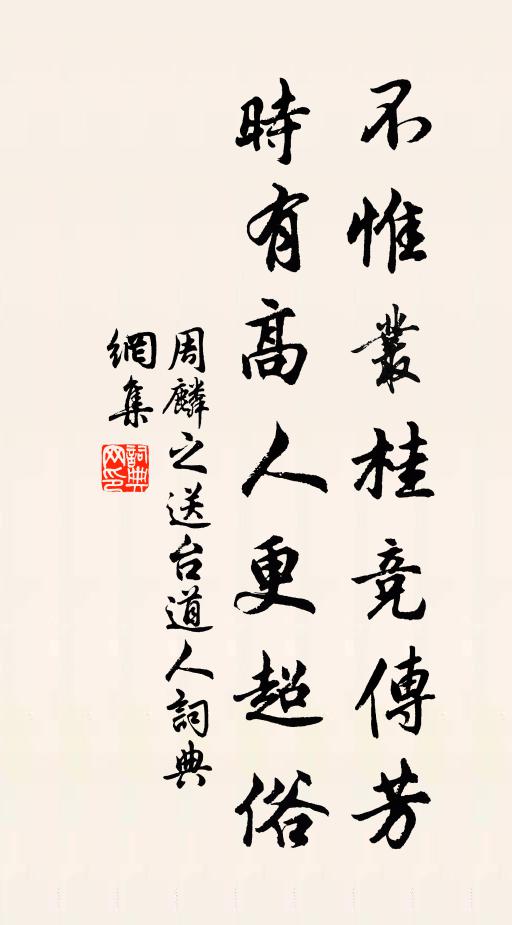 不惟叢桂竞傳芳
時有高人更超俗
周麟之送台道人詞典
網集
詞典
网印